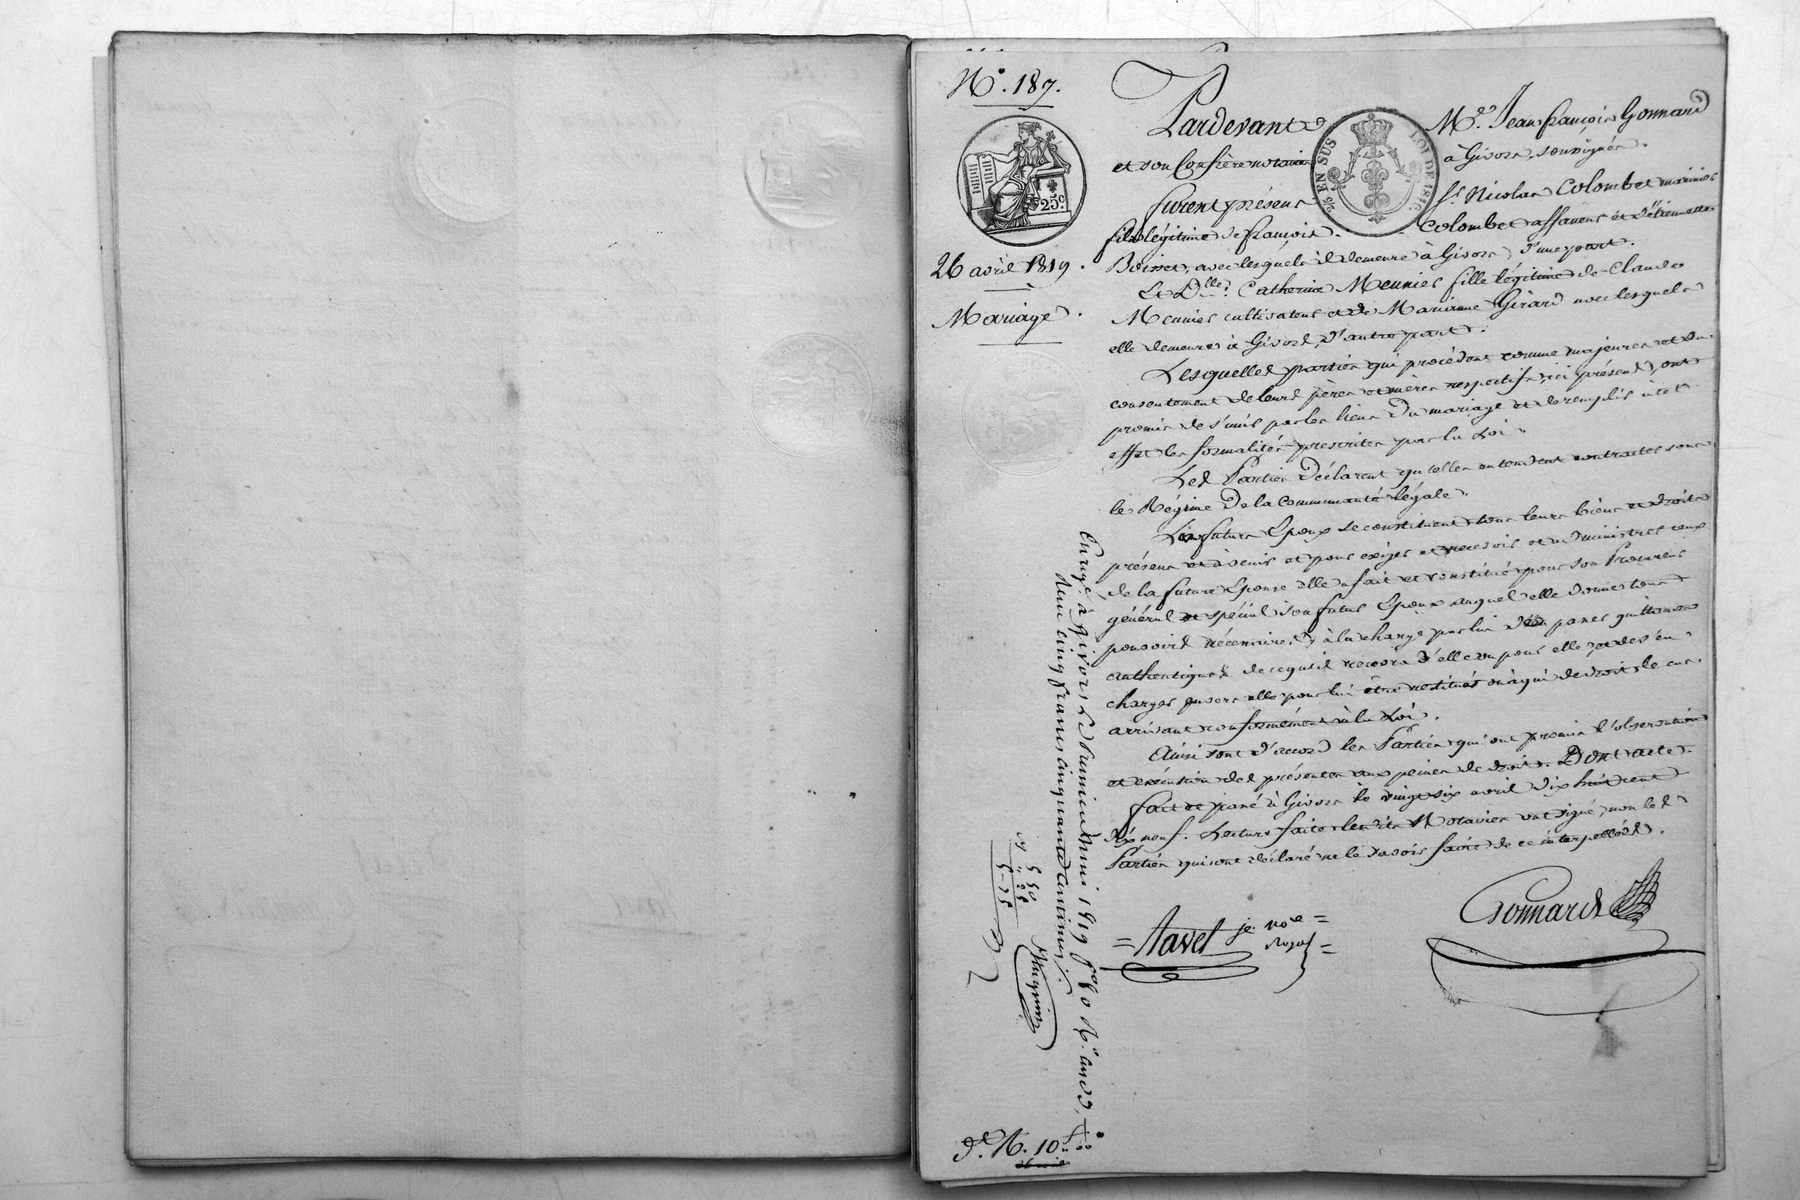 N.° 187.
25.c
26 avril 1819.
Mariage.
2/10 EN SUS LOI DE 1816
Pardevant M.es Jean françois Gonnard
et son Confrère notaires à Givors, soussignés.
furent présens s.r Nicolas Colombet marinier
fils légitime de françois Colombet affaneur et d'étiennette
Boisset, avec lesquels il demeure à Givors, d'une part.
Et D.lle Catherine Meunier fille légitime de Claude
Meunier cultivateur et de Marianne Girard avec lesquels
elle demeure à Givors, d'autre part.
Lesquelles parties qui procèdent comme majeures et du
consentement de leurs pères et mères respectifs, ici présens, ont
promis de s'unir par les liens du mariage et de remplir à cet
effet les formalités prescrites par la Loi.
Les Parties Déclarent qu'elles entendent contracter sous
le Régime De la Communauté légale.
Les futurs Epoux se constituent tous leurs biens et droits
présens et à venir et pour exiger et recevoir et administrer ceux
de la future Epouse elle a fait et constitué pour son Procureur
général et spécial son futur Epoux auquel elle donne tous
pouvoirs nécessaires, à la charge par lui de passer quittances
authentiques de ce qu'il recevra d'elle ou pour elle, et de s'en
charger envers elle pour lui être restitués ou à qui de droit le cas
arrivant conformément à la Loi.
Ainsi sont d'accord les Parties qui ont promis l'observation
et exécution des présentes aux peines de droit. Dont acte.
fait et passé à Givors le vingt six avril dix huit cent
dix neuf. Lecture faite lesdits Notaires ont signé, non les d.
Parties qui ont déclaré ne le savoir faire de ce interpellées.
Tavel je. no.re royal
Gonnard
Enregé à Givors Le Premier Mai 1819 f.o 80 R.o
Reçu cinq francs cinquante centimes.
5 50
" 25
5-75
10